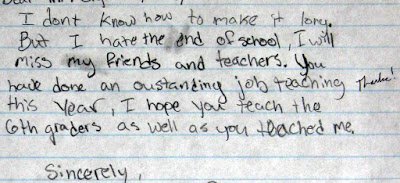 I dont know how to make it long.
But I hate the end of school, I will
miss my friends and teachers. You
have done an oustanding job teaching Thanks!
this year, I hope you teach the
6th graders as well as you teached me.
Sincerely,